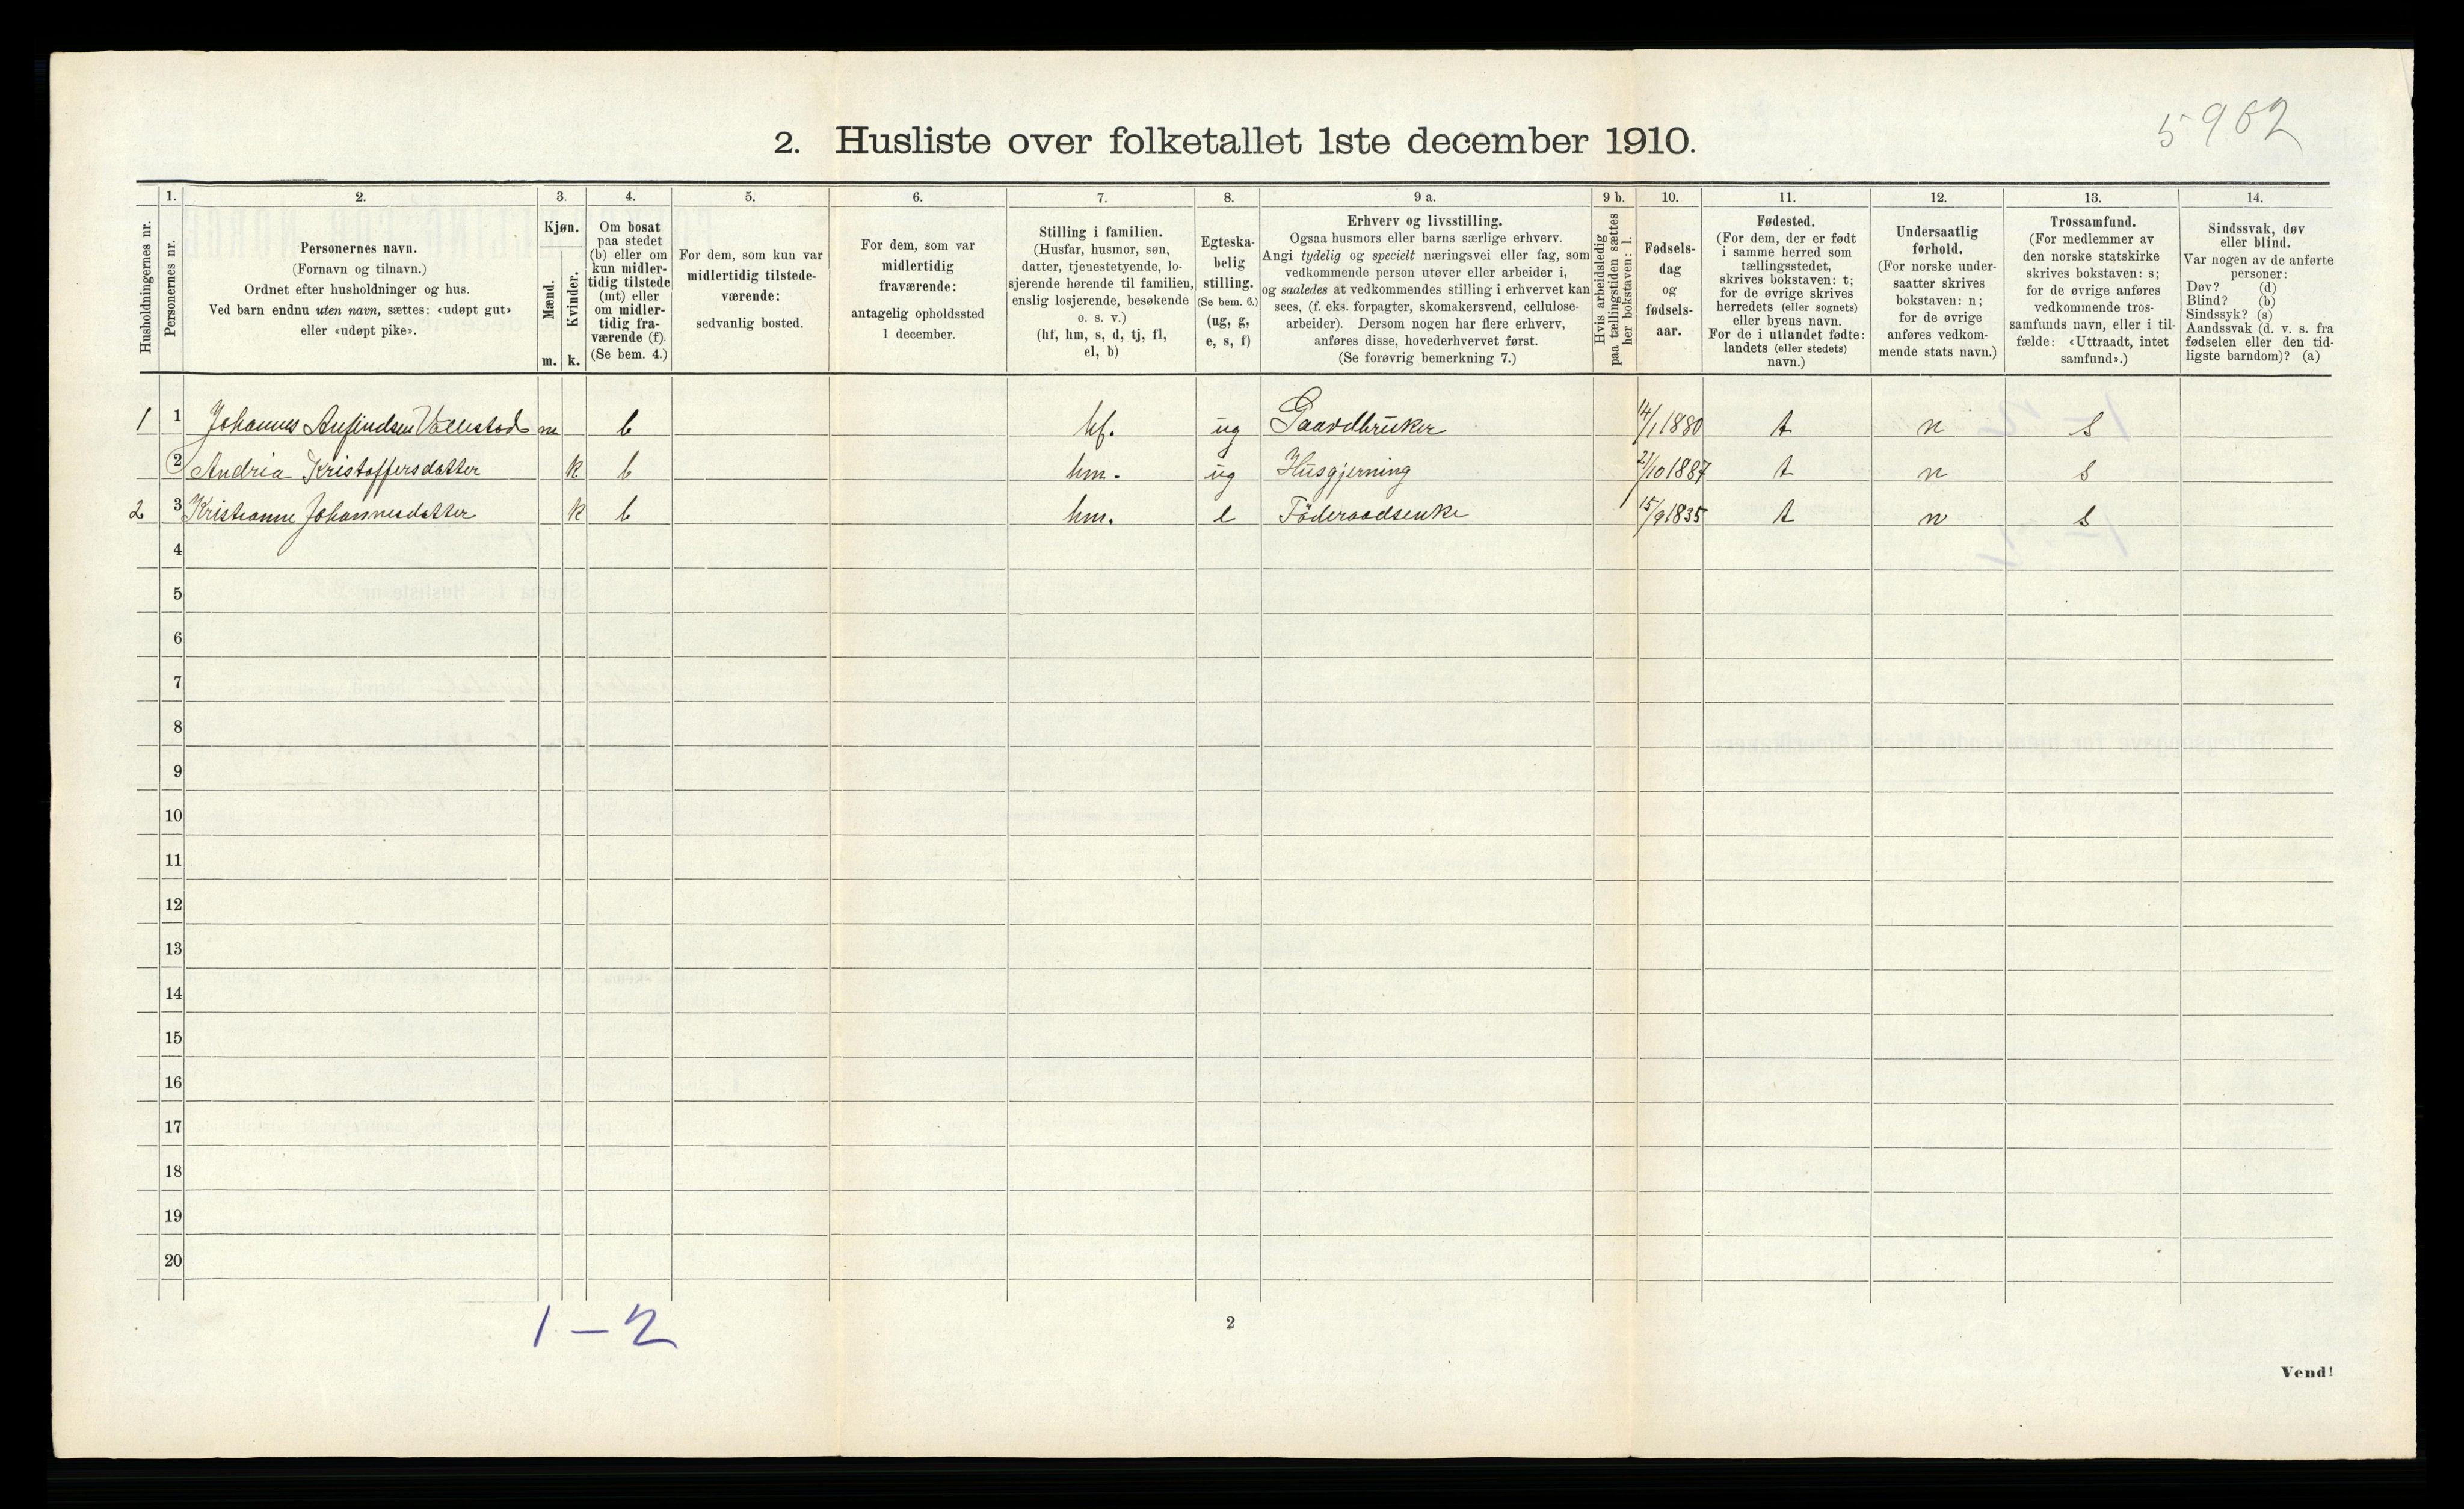 5962
2. Husliste over folketallet 1ste december 1910.
1. 2. 3. 4. 5. 6. 7. 8. 9 a. 9 b. 10. 11. 12. 13. 14.
Husholdningernes nr.
Personernes nr.
Personernes navn.
(Fornavn og tilnavn.)
Ordnet efter husholdninger og hus.
Ved barn endnu uten navn, sættes: «udøpt gut»
eller «udøpt pike».
Kjøn.
Mænd.
Kvinder.
m. k.
Om bosat
paa stedet
(b) eller om
kun midler-
tidig tilstede
(mt) eller
om midler-
tidig fra-
værende (f).
(Se bem. 4.)
For dem, som kun var
midlertidig tilstede-
værende:
sedvanlig bosted.
For dem, som var
midlertidig
fraværende:
antagelig opholdssted
1 december.
Stilling i familien.
(Husfar, husmor, søn,
datter, tjenestetyende, lo-
sjerende hørende til familien,
enslig losjerende, besøkende
o. s. v.)
(hf, hm, s, d, tj, fl,
el, b)
Egteska-
belig
stilling.
(Se bem. 6.)
(ug, g,
e, s, f)
Erhverv og livsstilling.
Ogsaa husmors eller barns særlige erhverv.
Angi tydelig og specielt næringsvei eller fag, som
vedkommende person utøver eller arbeider i,
og saaledes at vedkommendes stilling i erhvervet kan
sees, (f. eks. forpagter, skomakersvend, cellulose-
arbeider). Dersom nogen har flere erhverv,
anføres disse, hovederhvervet først.
(Se forøvrig bemerkning 7.)
Hvis arbeidsledig
paa tællingstiden sættes
her bokstaven: l.
Fødsels-
dag
og
fødsels-
aar.
Fødested.
(For dem, der er født
i samme herred som
tællingsstedet,
skrives bokstaven: t;
for de øvrige skrives
herredets (eller sognets)
eller byens navn.
For de i utlandet fødte:
landets (eller stedets)
navn.)
Undersaatlig
forhold.
(For norske under-
saatter skrives
bokstaven: n;
for de øvrige
anføres vedkom-
mende stats navn.)
Trossamfund.
(For medlemmer av
den norske statskirke
skrives bokstaven: s;
for de øvrige anføres
vedkommende tros-
samfunds navn, eller i til-
fælde: «Uttraadt, intet
samfund».)
Sindssvak, døv
eller blind.
Var nogen av de anførte
personer:
Døv? (d)
Blind? (b)
Sindssyk? (s)
Aandssvak (d. v. s. fra
fødselen eller den tid-
ligste barndom)? (a)
1 1 Johannes Anfindsen Vallestad m b hf. ug Gaardbruker 14/1 1880 t n s
2 Andria Kristoffersdatter k b hm. ug Husgjerning 21/10 1887 t n s
2 3 Kristianne Johannesdatter k b hm. e Föderaadsenke 15/9 1835 t n s
4
5
6
7
8
9
10
11
12
13
14
15
16
17
18
19
20
1 – 2
2
Vend!